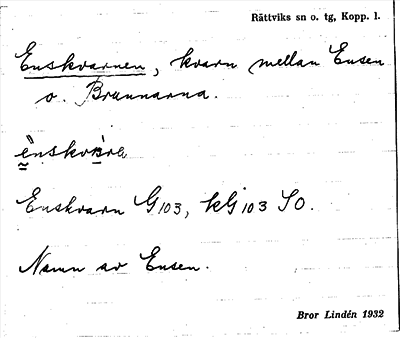 Rättviks sn o. tg, Kopp. l.
Enskvarnen, kvarn mellan Ensen
o. Brunnarna.
Enskvarn G103, kG103 SO.
Namn av Ensen.
Bror Lindén 1932